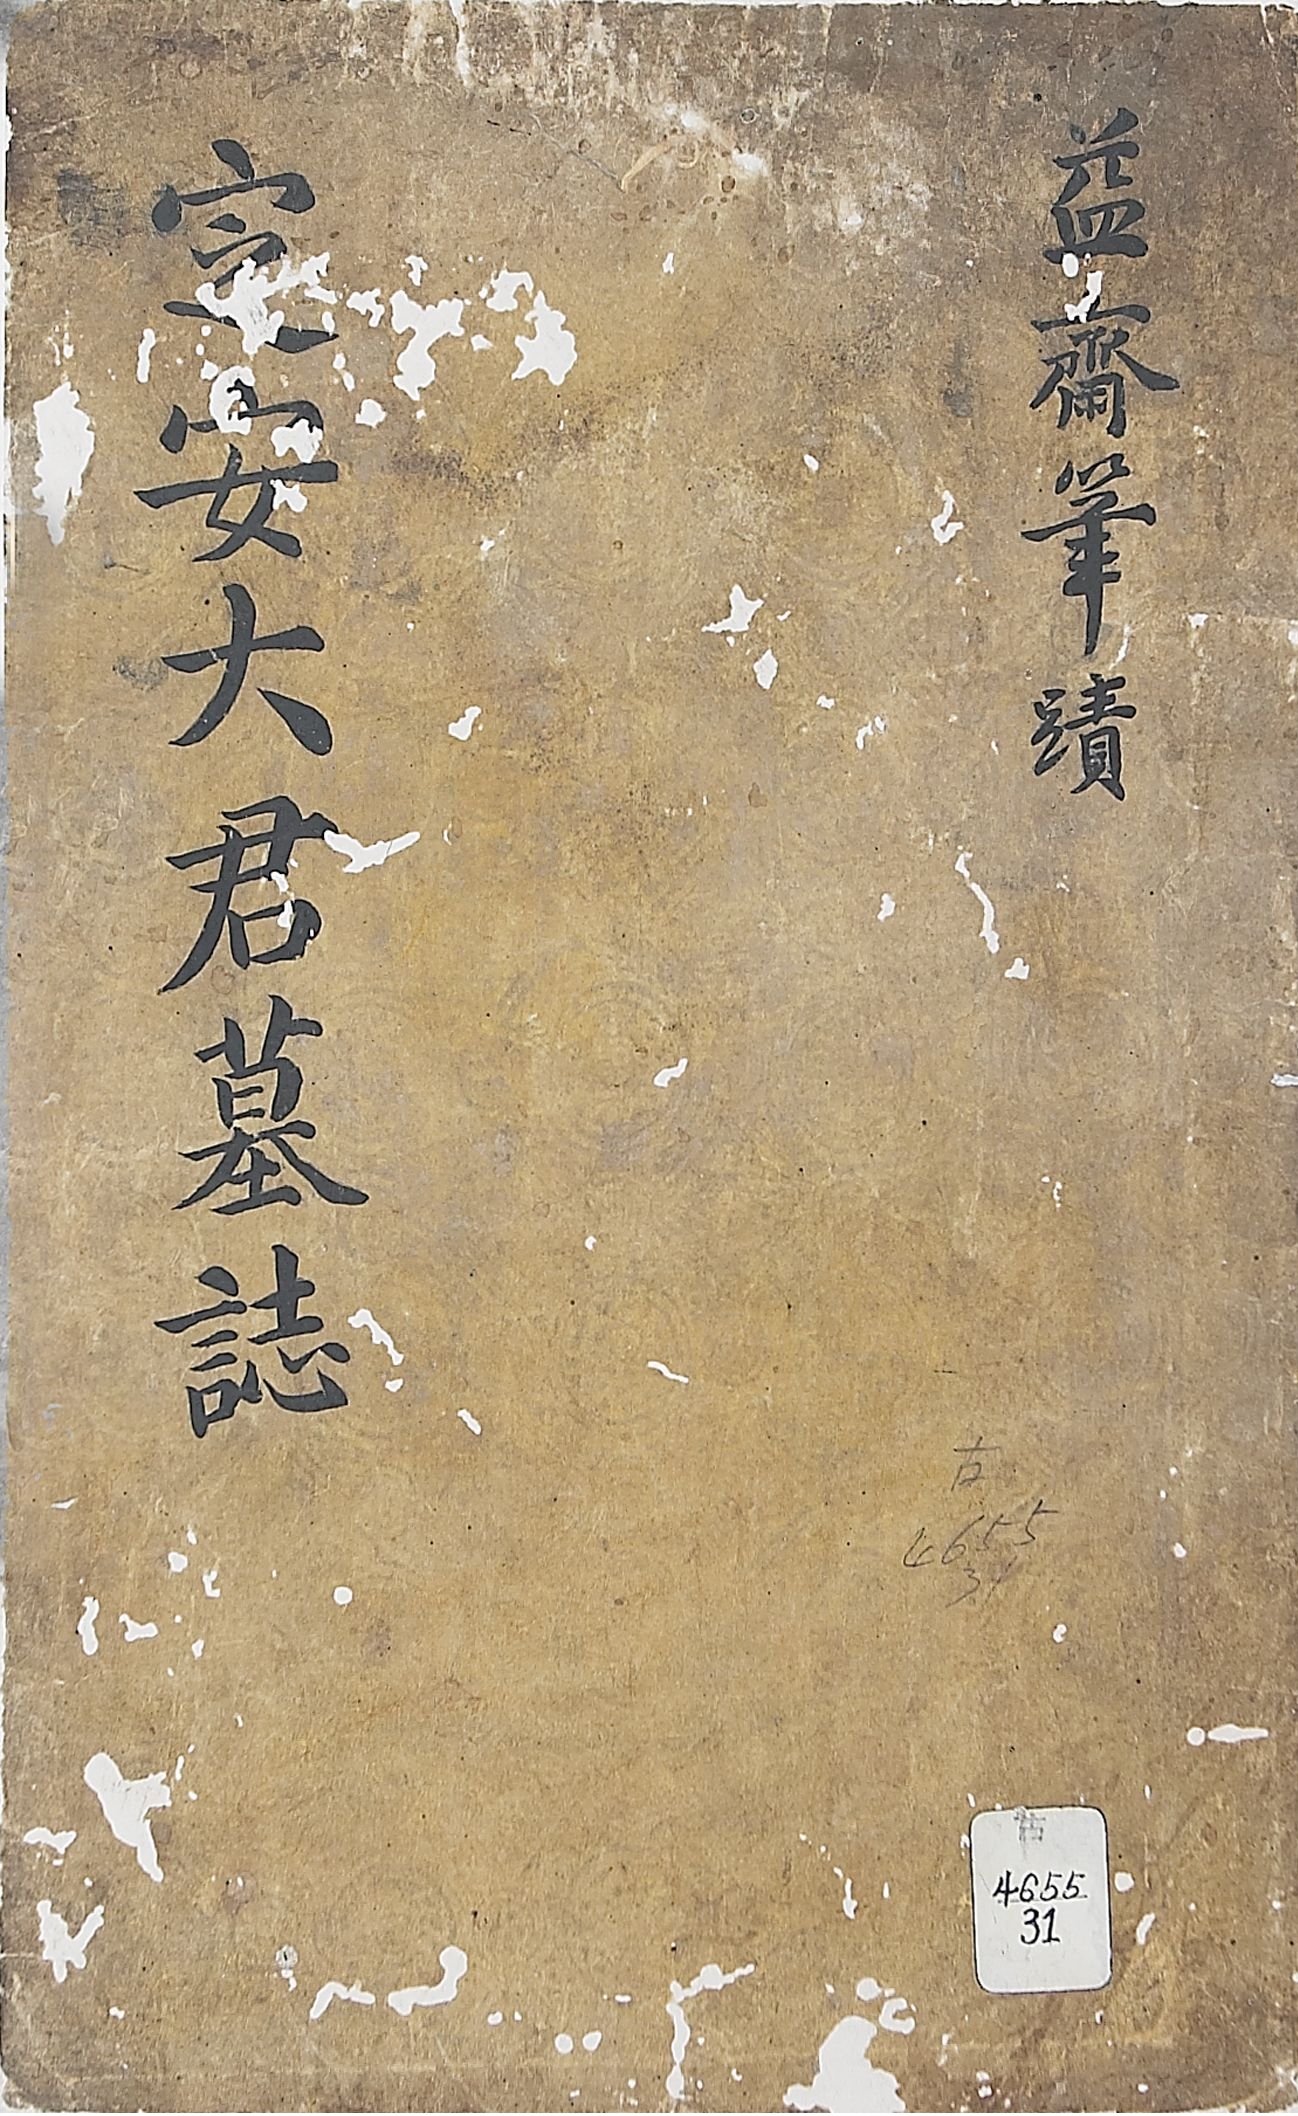 益齋筆蹟
定安大君墓誌
古
4655
31
古
4655
31